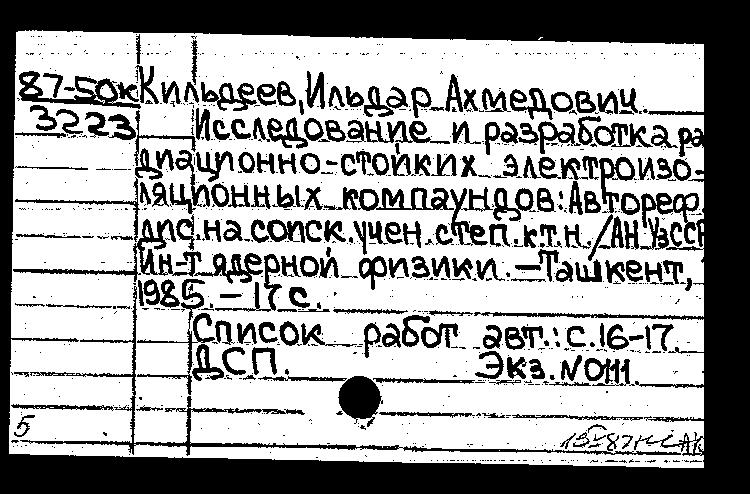 87-50к Кильдеев, Ильдар Ахмедович.
3223 Исследование и разработка ра
диационно-стойких электроизо-
ляционных компаундов: Автореф.
дис. на соиск. учен. степ. к.т.н. / АН УзССР
Ин-т ядерной физики. - Ташкент,
1985. - 17 с.
Список работ авт.: с. 16-17.
ДСП. Экз. N 0111.
5